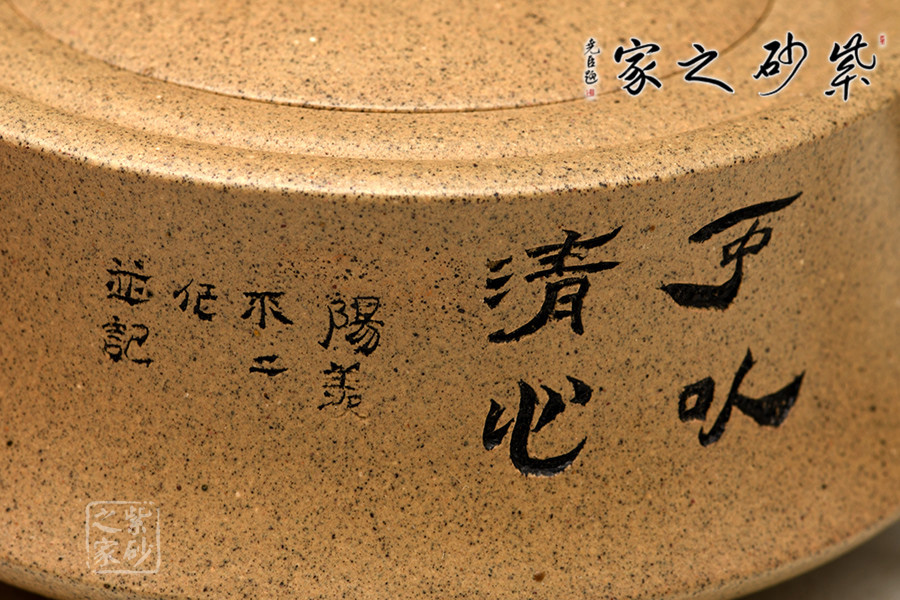 紫砂之家
尧臣题
可以
清心
陽羨
不二
作
並記
紫砂
之家